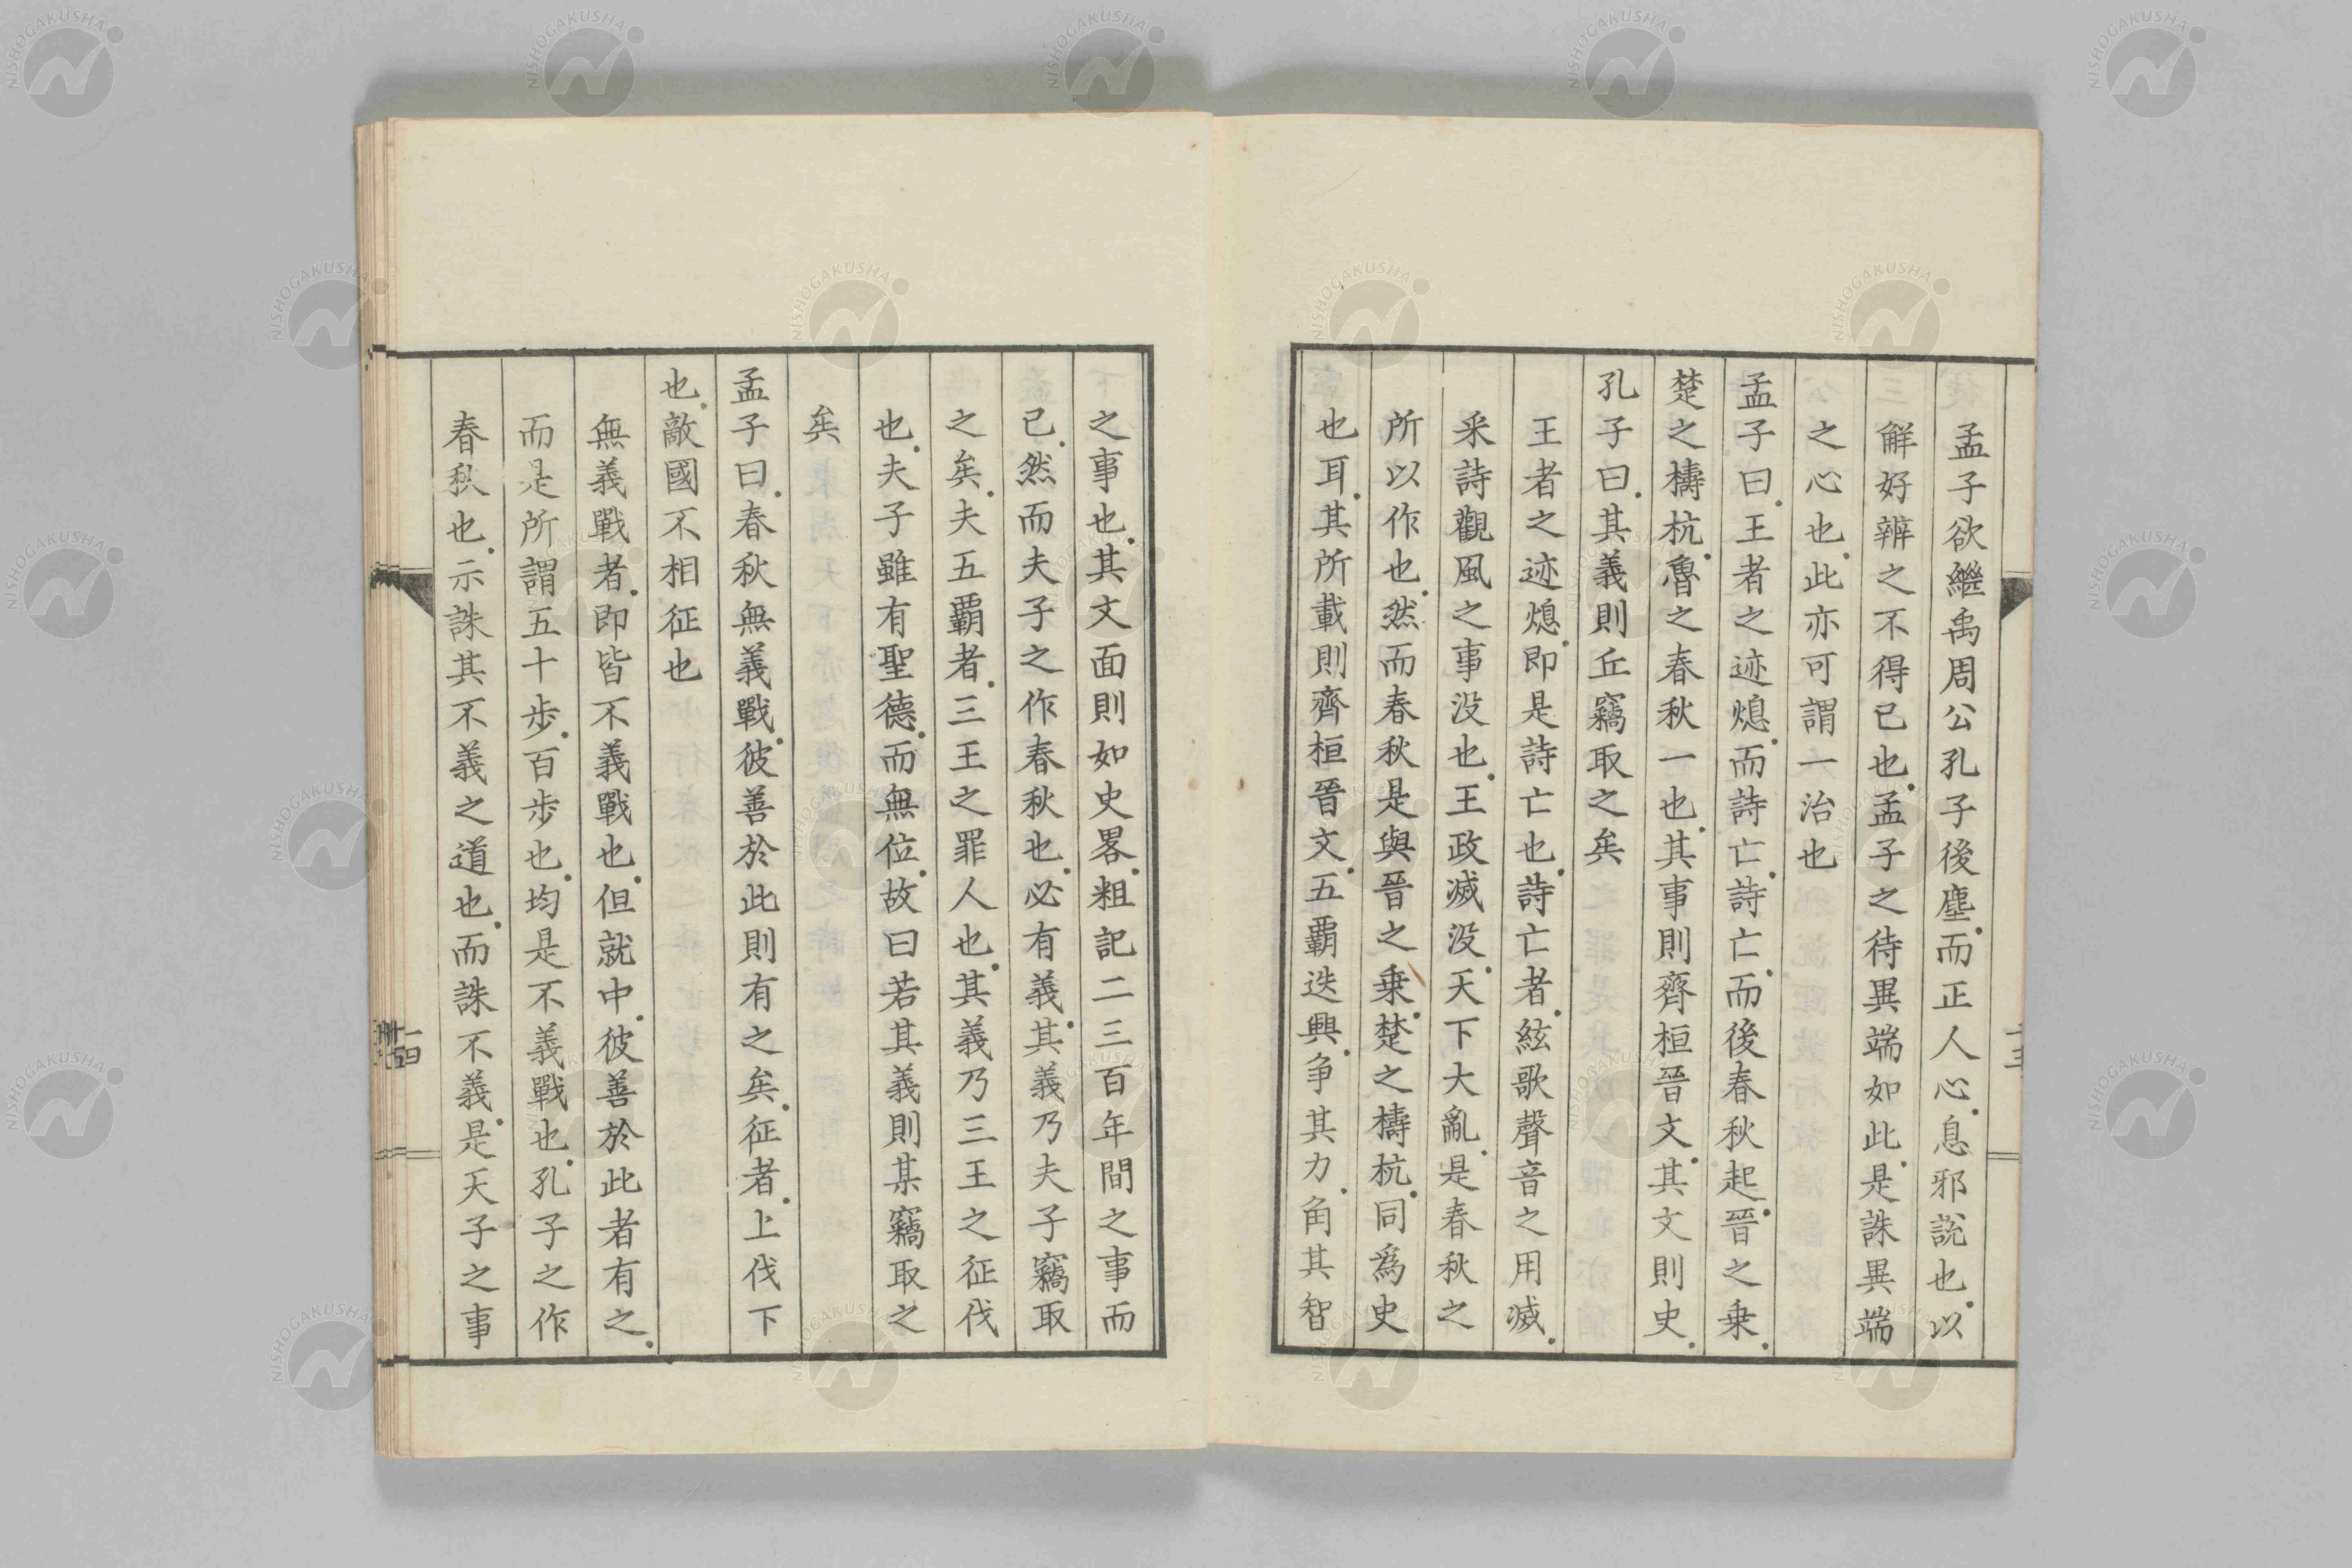 孟子欲繼禹周公孔子後塵.而正人心.息邪說也.以
解好辨之不得已也.孟子之待異端如此.是誅異端
之心也.此亦可謂一治也
孟子曰.王者之迹熄.而詩亡.詩亡.而後春秋起.晉之乗.
楚之檮杭.魯之春秋一也.其事則齊桓晉文.其文則史.
孔子曰.其義則丘竊取之矣
王者之迹熄.即是詩亡也.詩亡者.絃歌聲音之用滅.
采詩觀風之事没也.王政滅没.天下大亂.是春秋之
所以作也.然而春秋是與晉之乗.楚之檮杭.同爲史
也耳.其所載則齊桓晉文.五覇迭興.争其力.角其智
之事也.其文面則如史畧.粗記二三百年間之事而
已.然而夫子之作春秋也.必有義.其義乃夫子竊取
之矣.夫五覇者.三王之罪人也.其義乃三王之征伐
也.夫子雖有聖德.而無位.故曰若其義則某竊取之
矣
孟子曰.春秋無義戰.彼善於此則有之矣.征者.上伐下
也.敵國不相征也
無義戰者.即皆不義戰也.但就中.彼善於此者有之.
而是所謂五十歩.百歩也.均是不義戰也.孔子之作
春秋也.示誅其不義之道也.而誅不義.是天子之事
NISHOGAKUSHA